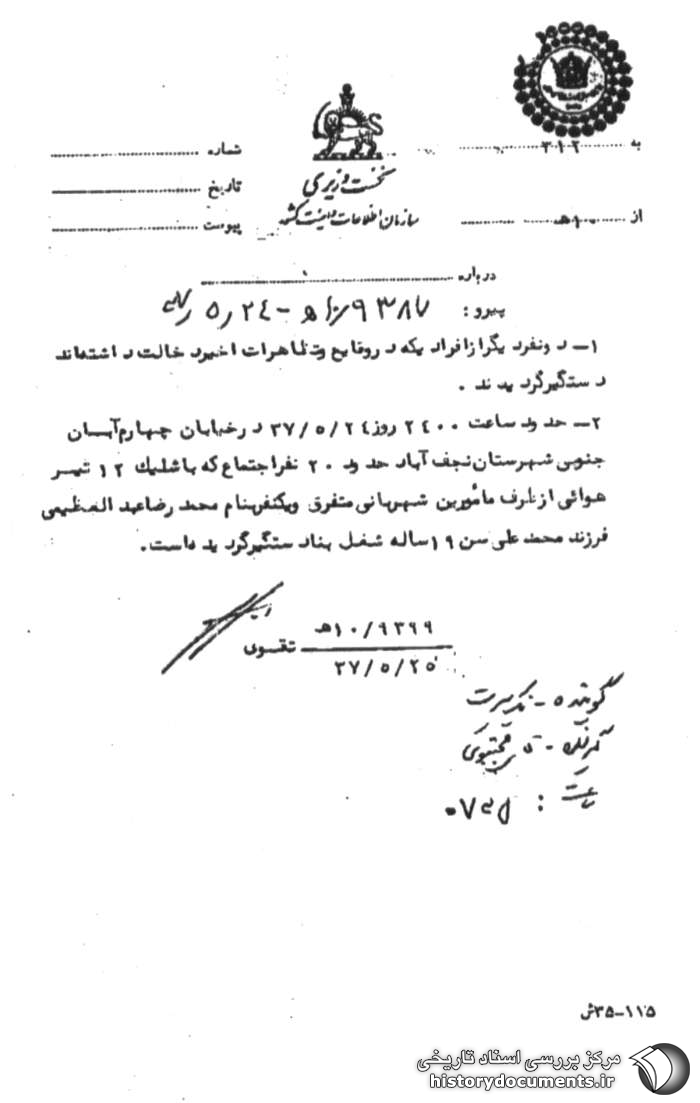 به ۳۱۲
شماره
نخست وزیری
تاریخ
سازمان اطلاعات و امنیت کشور
از ۱۰هـ
پیوست
درباره
پیرو : ۹۳۸۷/۱۰هـ - ۲۴/۵/
۱- دو نفر دیگر از افرادیکه در وقایع و تظاهرات اخیر دخالت داشته‌اند
دستگیر گردیدند .
۲- حدود ساعت ۲۴۰۰ روز ۳۷/۵/۲۴ در خیابان چهارم آبان
جنوبی شهرستان نجف آباد حدود ۲۰ نفر اجتماع که با شلیک ۱۲ تیر
هوائی از طرف مأمورین شهربانی متفرق و یکنفر بنام محمد رضا عبد العظیمی
فرزند محمد علی سن ۱۹ ساله شغل بنا دستگیر گردیده است.
۹۳۹۹/۱۰هـ
تقوی
۳۷/۵/۲۵
گوینده -
گیرنده - مجتبوی
ساعت :
۱۱۵-۳۵ش
مرکز بررسی اسناد تاریخی
historydocuments.ir